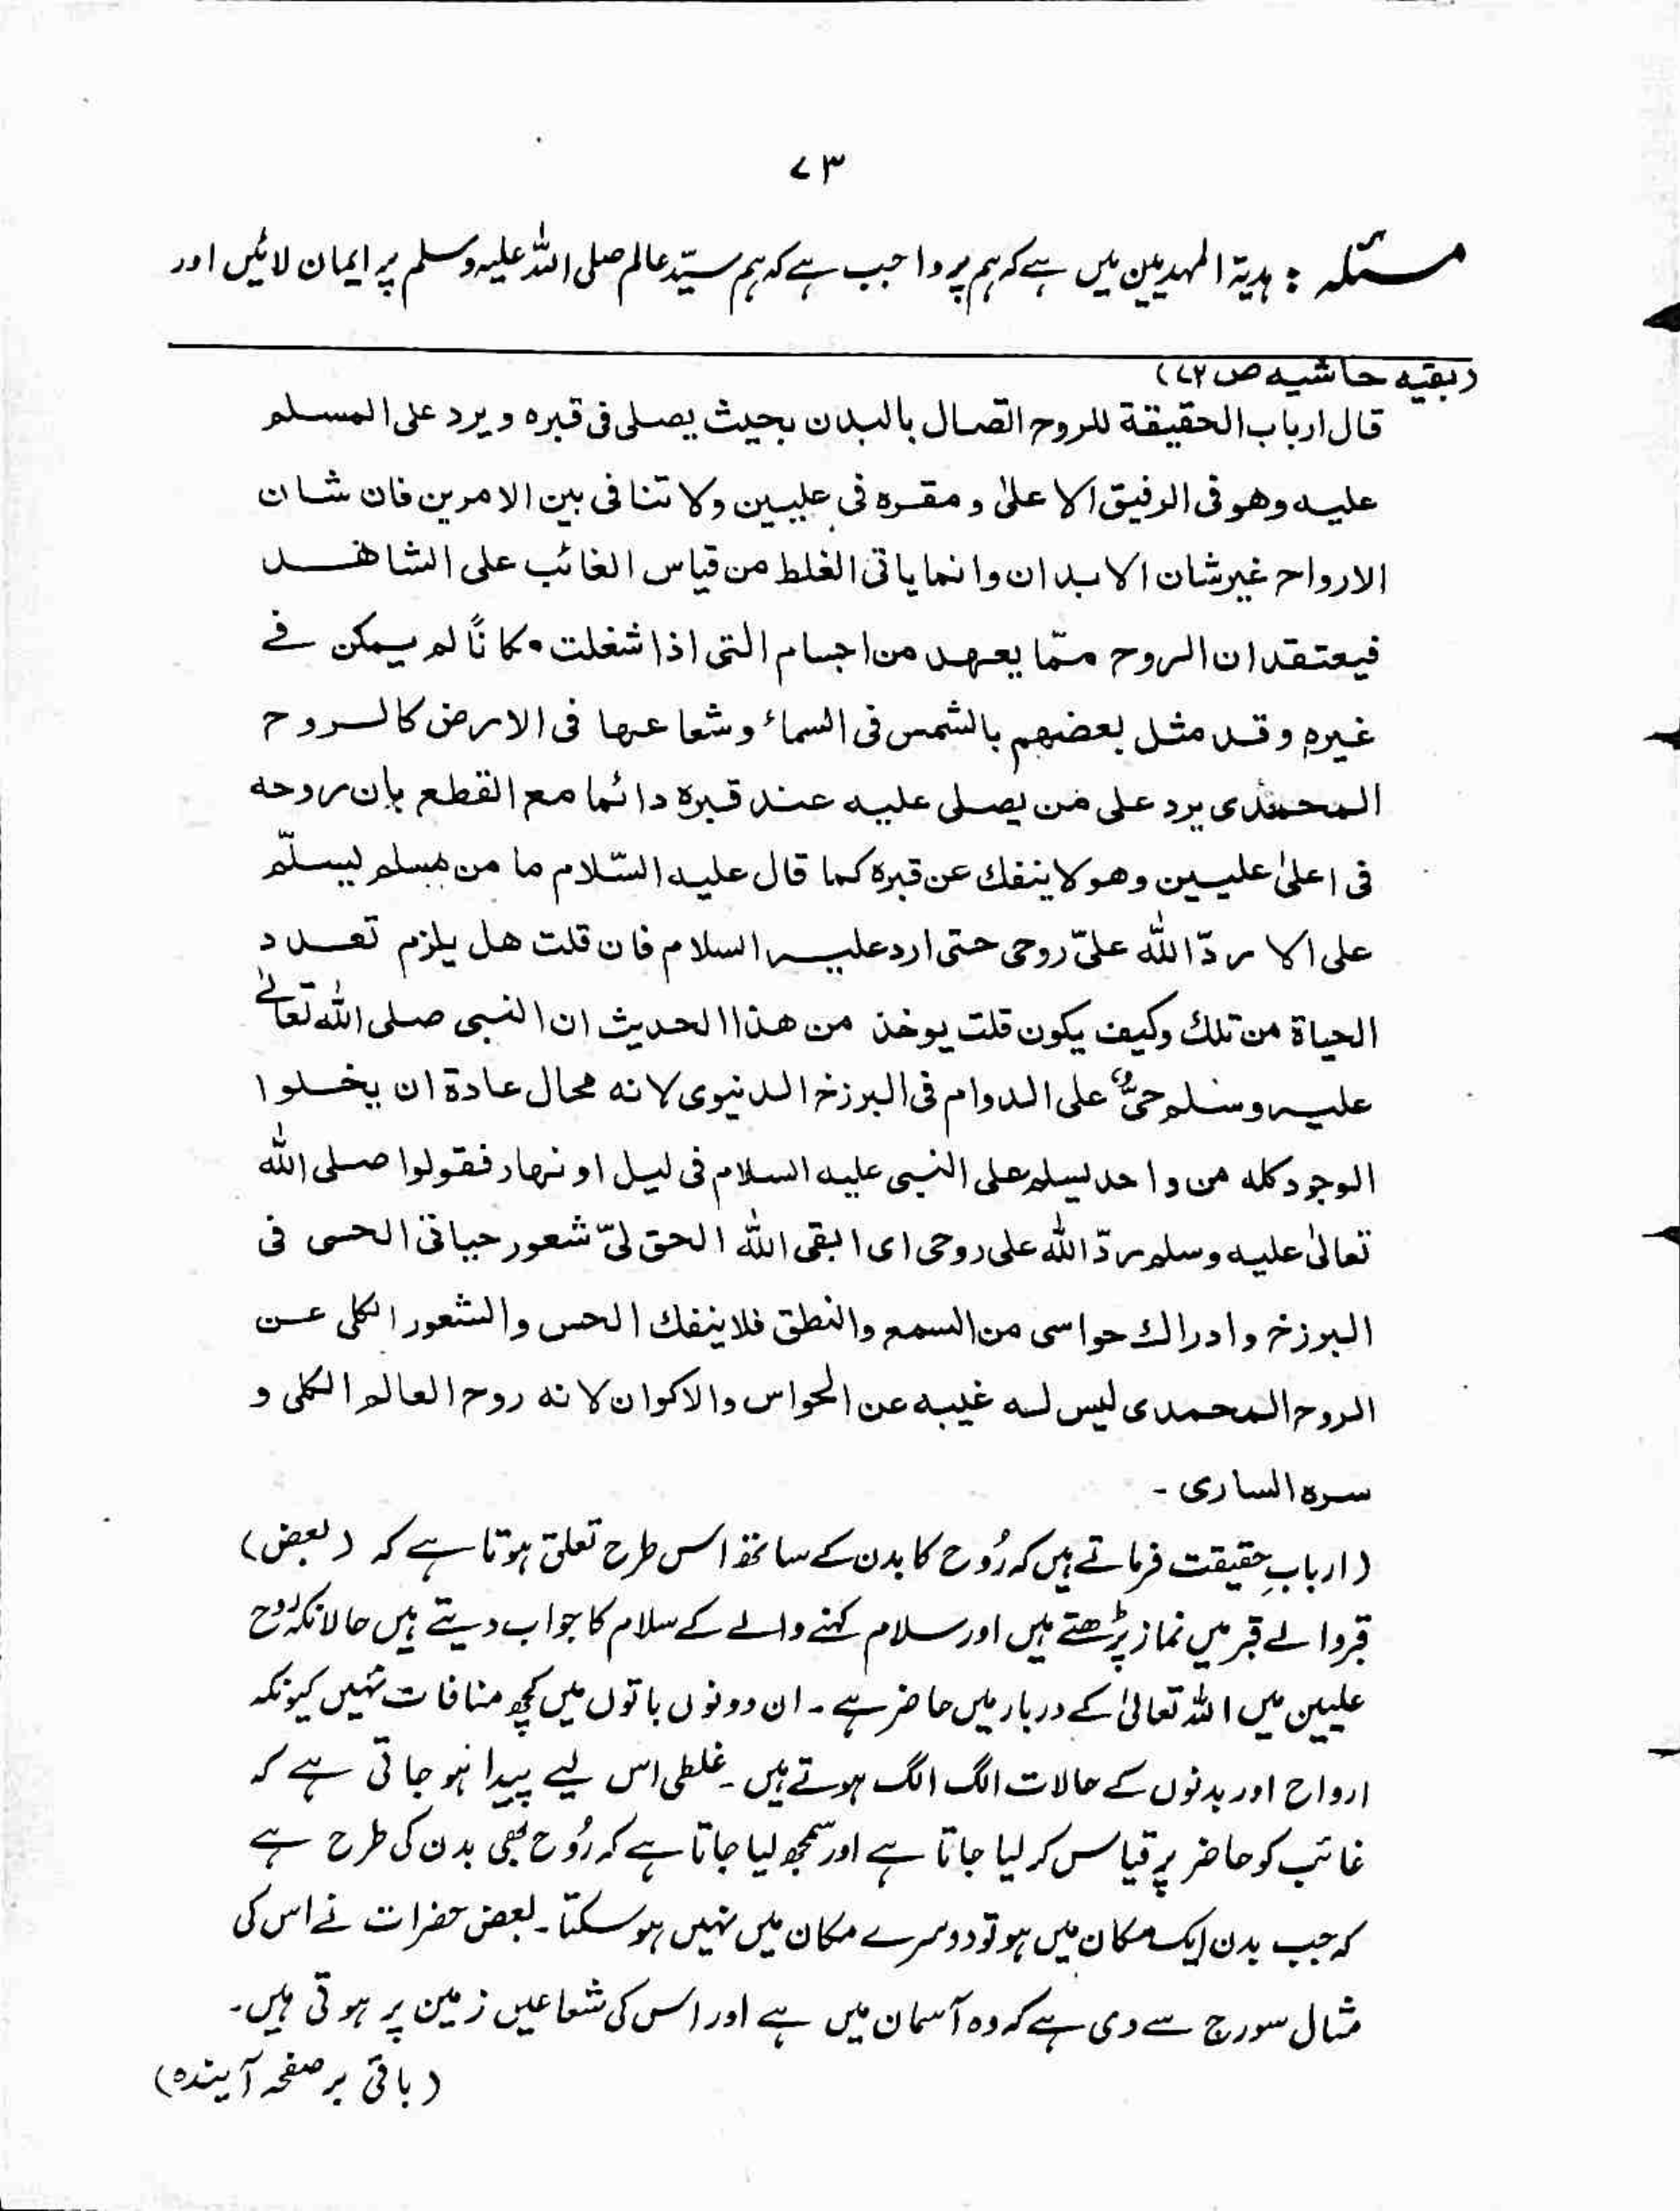 ۷۳
مسئلہ : ہدیۃ المہدیین میں ہے کہ ہم پر واجب ہے کہ ہم سیّد عالم صلی اللہ علیہ وسلم پر ایمان لائیں اور
(بقیہ حاشیہ ص ۷۲)
قال ارباب الحقیقة للروح اتصال بالبدن بحیث یصلی فی قبرہ و یرد علی المسلم
علیہ وھو فی الرفیق الاعلیٰ و مقرہ فی علیین ولا تنافی بین الامرین فان شان
الارواح غیر شان الابدان وانما یاتی الغلط من قیاس الغائب علی الشاھد
فیعتقد ان الروح ممّا یعھد من اجسام التی اذا شغلت مکاناً لم یمکن فے
غیرہ وقد مثل بعضھم بالشمس فی السماء وشعاعھا فی الارض کالروح
المحمدی یرد علی من یصلی علیہ عند قبرہ دائما مع القطع بان روحہ
فی اعلیٰ علیین وھو لا ینفک عن قبرہ کما قال علیہ السّلام ما من مسلم یسلّم
علی الا ردّ اللہ علیّ روحی حتی ارد علیہ السلام فان قلت ھل یلزم تعدد
الحیاة من تلک وکیف یکون قلت یوخذ من ھذا الحدیث ان النبی صلی اللہ تعالیٰ
علیہ وسلم حیٌّ علی الدوام فی البرزخ الدنیوی لانہ محال عادة ان یخلوا
الوجود کلہ من واحد یسلم علی النبی علیہ السلام فی لیل او نھار فقولوا صلی اللہ
تعالیٰ علیہ وسلم ردّ اللہ علی روحی ای ابقی اللہ الحق لیّ شعور حیاتی الحسی فی
البرزخ وادراک حواسی من السمع والنطق فلا ینفک الحس والشعور الکلی عن
الروح المحمدی لیس لہ غیبہ عن الحواس والاکوان لانہ روح العالم الکلی و
سرہ الساری ۔
(اربابِ حقیقت فرماتے ہیں کہ رُوح کا بدن کے ساتھ اس طرح تعلق ہوتا ہے کہ (بعض)
قبر والے قبر میں نماز پڑھتے ہیں اور سلام کہنے والے کے سلام کا جواب دیتے ہیں حالانکہ روح
علیین میں اللہ تعالیٰ کے دربار میں حاضر ہے ۔ ان دونوں باتوں میں کچھ منافات نہیں کیونکہ
ارواح اور بدنوں کے حالات الگ الگ ہوتے ہیں ۔ غلطی اس لیے پیدا ہو جاتی ہے کہ
غائب کو حاضر پر قیاس کر لیا جاتا ہے اور سمجھ لیا جاتا ہے کہ رُوح بھی بدن کی طرح ہے
کہ جب بدن ایک مکان میں ہو تو دوسرے مکان میں نہیں ہو سکتا ۔ بعض حضرات نے اس کی
مثال سورج سے دی ہے کہ وہ آسمان میں ہے اور اس کی شعاعیں زمین پر ہوتی ہیں ۔
(باقی بر صفحہ آیندہ)